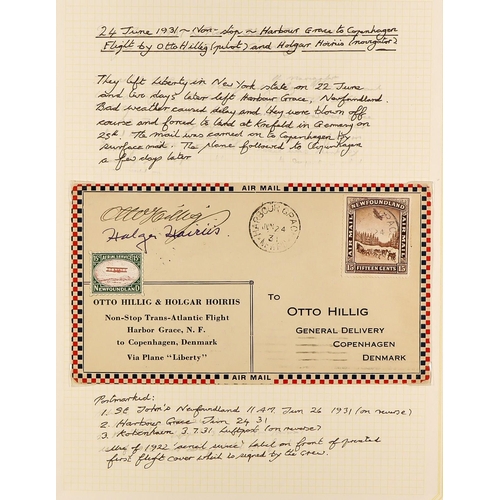 24 June 1931 ~ Non-stop ~ Harbour Grace to Copenhagen
Flight by Otto Hillig (pilot) and Holgar Hoiriis (navigator)
They left Liberty in New York state on 22 June
and two days later left Harbour Grace, Newfoundland.
Bad weather caused delay and they were blown off
course and forced to land at Krefeld in Germany on
25th. The mail was carried on to Copenhagen by
surface mail. The plane followed to Copenhagen
a few days later
AIR MAIL
Otto Hillig
Holger Hoiriis
HARBOUR GRACE
JUN 24
31
NEWFOUNDLAND
AIR MAIL
AIR MAIL
15 FIFTEEN CENTS 15
15c AERIAL SERVICE 15c
NEWFOUNDLAND
OTTO HILLIG & HOLGAR HOIRIIS
Non-Stop Trans-Atlantic Flight
Harbor Grace, N. F.
to Copenhagen, Denmark
Via Plane "Liberty"
To
OTTO HILLIG
GENERAL DELIVERY
COPENHAGEN
DENMARK
AIR MAIL
Postmarked:
1. St John's Newfoundland 11 AM. Jun 26 1931 (on reverse)
2. Harbour Grace Jun 24 31
3. Kobenhavn 3.7.31 Luftpost (on reverse)
Use of 1922 'aerial service' label on front of printed
first flight cover which is signed by the crew.